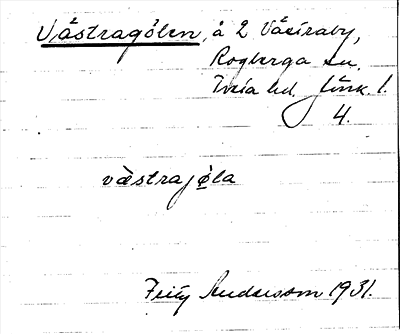 Västragölen, å 2 Väsíraby,
Rogberga sn.
Tveta hd. Jönk. l.
4.
västrajøla
Fritz Andersson 1931.